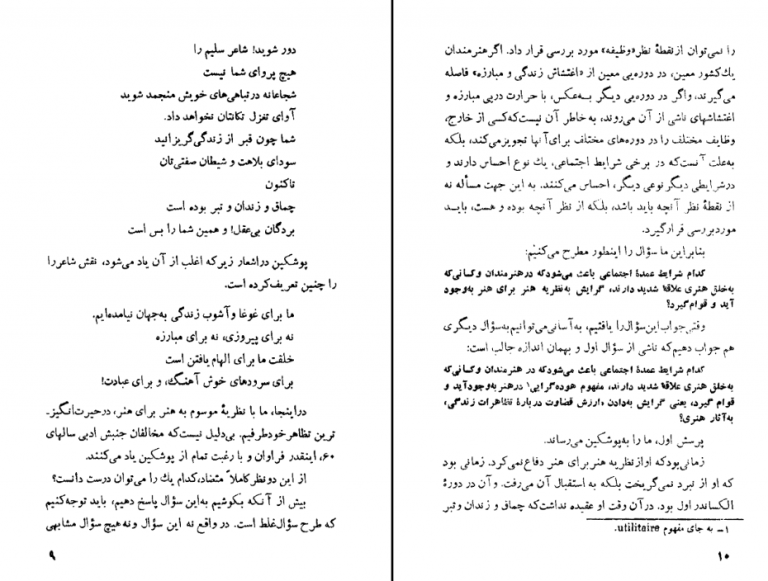 دور شوید! شاعر سلیم را
هیچ پروای شما نیست
شجاعانه در تباهی‌های خویش منجمد شوید
آوای تغزل تکانتان نخواهد داد.
شما چون قبر از زندگی گریزانید
سودای بلاهت و شیطان صفتی‌تان
تاکنون
چماق و زندان و تبر بوده است
بردگان بی‌عقل! و همین شما را بس است
پوشکین در اشعار زیر که اغلب از آن یاد می‌شود، نقش شاعر را
را چنین تعریف کرده است.
ما برای غوغا و آشوب زندگی به‌جهان نیامده‌ایم.
نه برای پیروزی، نه برای مبارزه
خلقت ما برای الهام یافتن است
برای سرودهای خوش آهنگ، و برای عبادت!
در اینجا، ما با نظریهٔ موسوم به هنر برای هنر، در حیرت‌انگیز-
ترین تظاهر خود طرفیم. بی‌دلیل نیست که مخالفان جنبش ادبی سالهای
۶۰، اینقدر فراوان و با رغبت تمام از پوشکین یاد می‌کنند.
از این دو نظر کاملاً متضاد، کدام یك را می‌توان درست دانست؟
بیش از آنکه بکوشیم به‌این سؤال پاسخ دهیم، باید توجه کنیم
که طرح سؤال غلط است. در واقع نه این سؤال و نه هیچ سؤال مشابهی
۹
را نمی‌توان از نقطهٔ نظر «وظیفه» مورد بررسی قرار داد. اگر هنرمندان
یك کشور معین، در دوره‌یی معین از «اغتشاش زندگی و مبارزه» فاصله
می‌گیرند، و اگر در دوره‌یی دیگر به‌عکس، با حرارت درپی مبارزه و
اغتشاشهای ناشی از آن می‌روند، به خاطر آن نیست که کسی از خارج،
وظایف مختلف را در دوره‌های مختلف برای آنها تجویز می‌کند، بلکه
به‌علت آنست که در برخی شرایط اجتماعی، یك نوع احساس دارند و
در شرایطی دیگر نوعی دیگر، احساس می‌کنند. به این جهت مسأله نه
از نقطهٔ نظر آنچه باید باشد، بلکه از نظر آنچه بوده و هست، بایـد
مورد بررسی قرار گیرد.
بنابراین ما سؤال را اینطور مطرح می‌کنیم:
کدام شرایط عمدهٔ اجتماعی باعث می‌شود که در هنرمندان و کسانی‌که
به‌خلق هنری علاقهٔ شدید دارند، گرایش به‌نظریه هنر برای هنر به‌وجود
آید و قوام گیرد؟
وقتی جواب این سؤال را یافتیم، به‌آسانی می‌توانیم به‌سؤال دیگری
هم جواب دهیم که ناشی از سؤال اول و بهمان اندازه جالب است:
کدام شرایط عمدهٔ اجتماعی باعث می‌شود که در هنرمندان و کسانی‌که
به‌خلق هنری علاقهٔ شدید دارند، مفهوم سوده‌گرایی۱ در هنر به‌وجود آید و
قوام گیرد، یعنی گرایش به‌دادن «ارزش قضاوت دربارهٔ تظاهرات زندگی،
به‌آثار هنری؟
پرسش اول، ما را به‌پوشکین می‌رساند.
زمانی بود که او از نظریه هنر برای هنر دفاع نمی‌کرد. زمانی بود
که او از نبرد نمی‌گریخت بلکه به استقبال آن می‌رفت. و آن در دورهٔ
الکساندر اول بود. در آن وقت او عقیده نداشت که چماق و زندان و تبر
۱- به جای مفهوم utilitaire.
۱۰